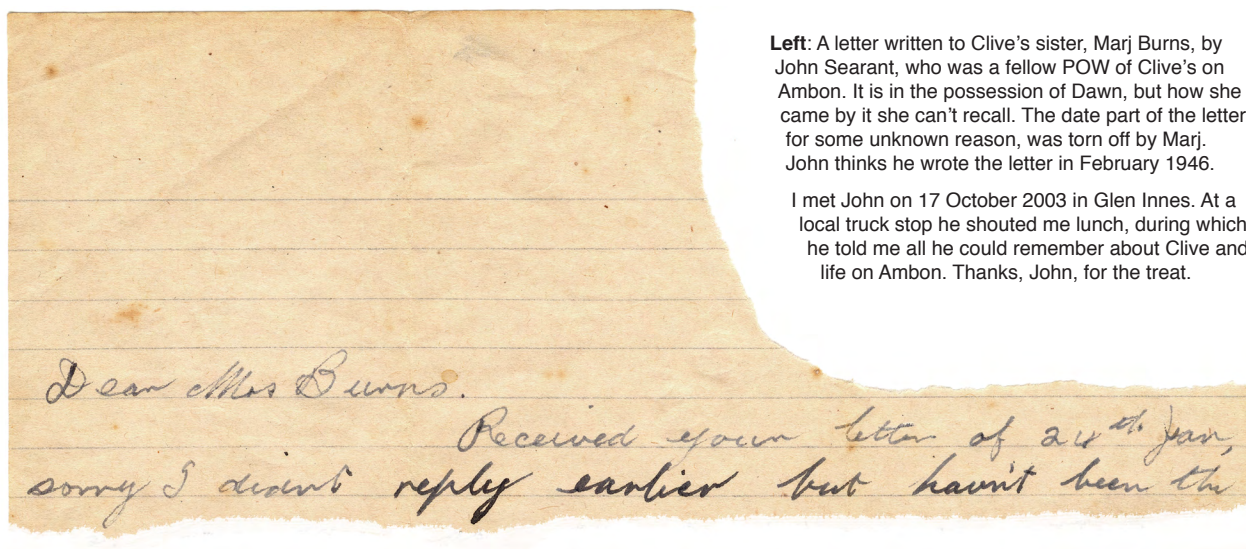 Left: A letter written to Clive's sister, Marj Burns, by
John Searant, who was a fellow POW of Clive's on
Ambon. It is in the possession of Dawn, but how she
came by it she can't recall. The date part of the letter
for some unknown reason, was torn off by Marj.
John thinks he wrote the letter in February 1946.
I met John on 17 October 2003 in Glen Innes. At a
local truck stop he shouted me lunch, during which
he told me all he could remember about Clive and
life on Ambon. Thanks, John, for the treat.
Dear Mrs Burns.
Received your letter of 24th Jan,
sorry I didnt reply earlier but havn't been the